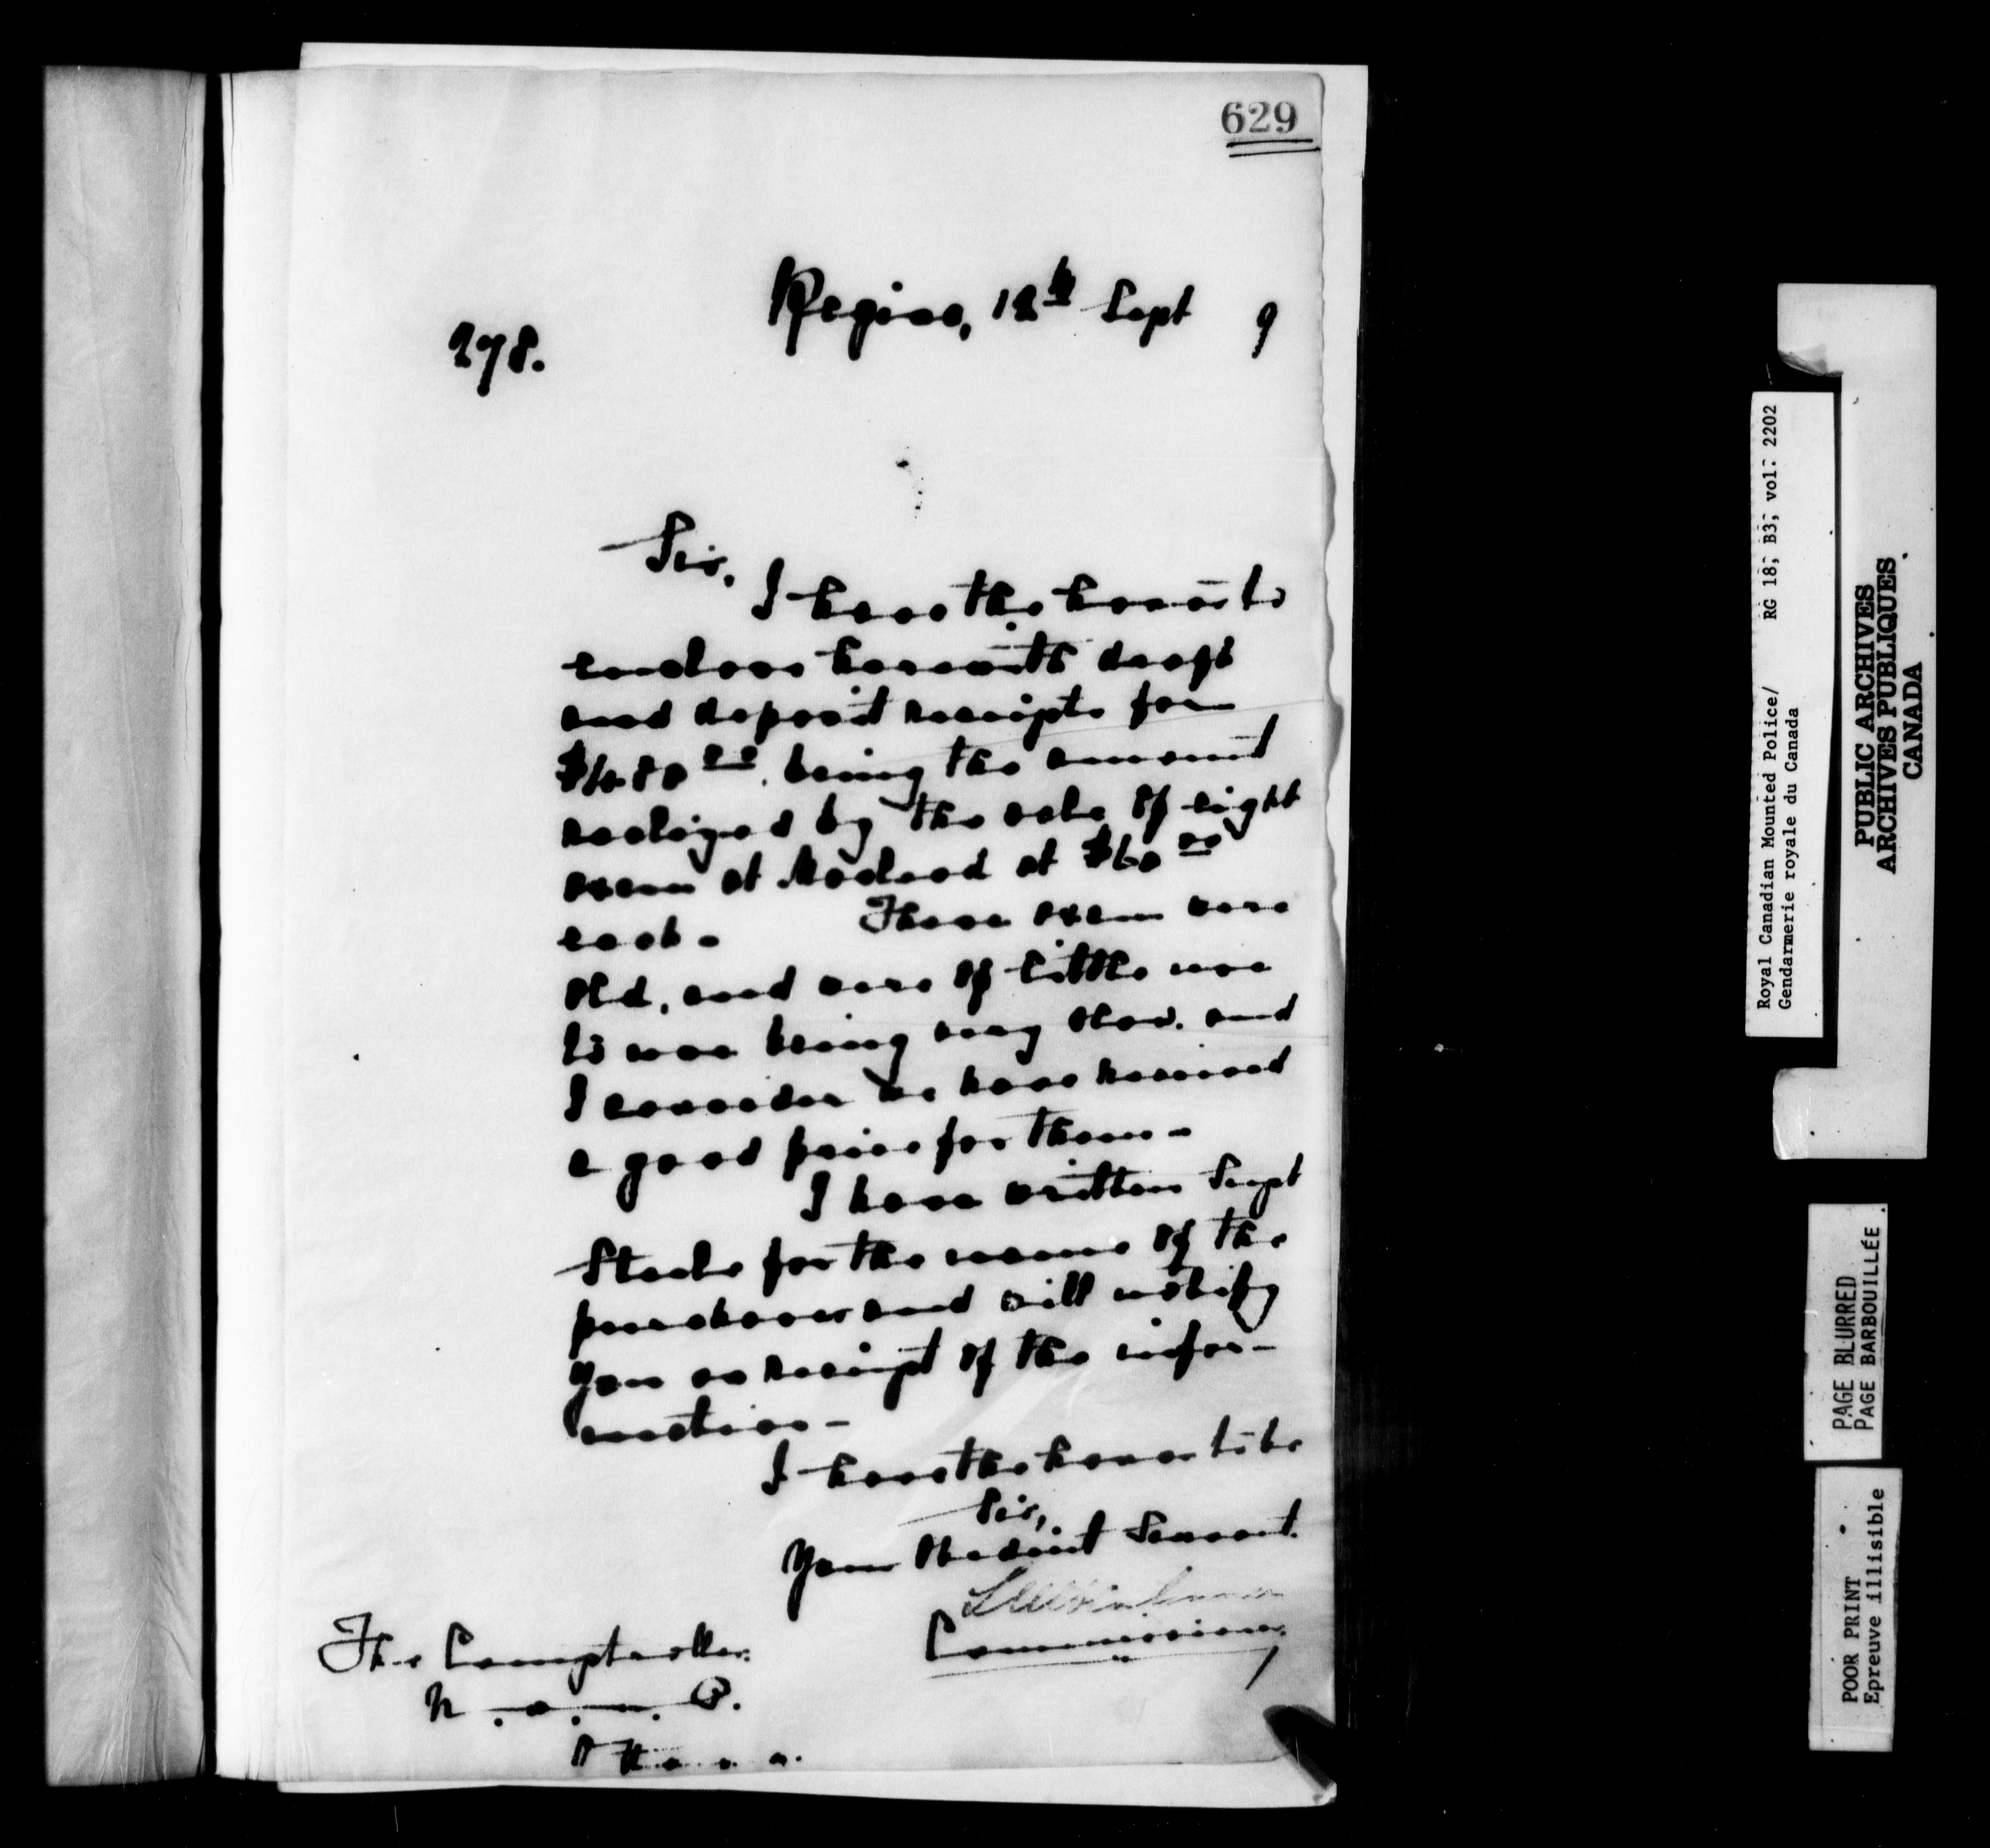 629
Regina, 12th Sept 9
278.
Sir,
I have the honor to
enclose herewith draft
and deposit receipts for
$480.00 being the amount
realized by the sale of eight
oxen at Macleod at $60.00
each - These oxen were
old, and were of little use
to us being very slow. and
I consider we have received
a good price for them -
I have written Supt
Steele for the name of the
purchaser and will notify
you on receipt of the infor-
mation -
I have the honor to be
Sir,
Your Obedient Servant.
Commissioner
The Comptroller
N. W. M. P.
Ottawa.
Royal Canadian Mounted Police/ RG 18, B3, vol. 2202
Gendarmerie royale du Canada
PUBLIC ARCHIVES
ARCHIVES PUBLIQUES
CANADA
PAGE BLURRED
PAGE BARBOUILLÉE
POOR PRINT
Epreuve illisible